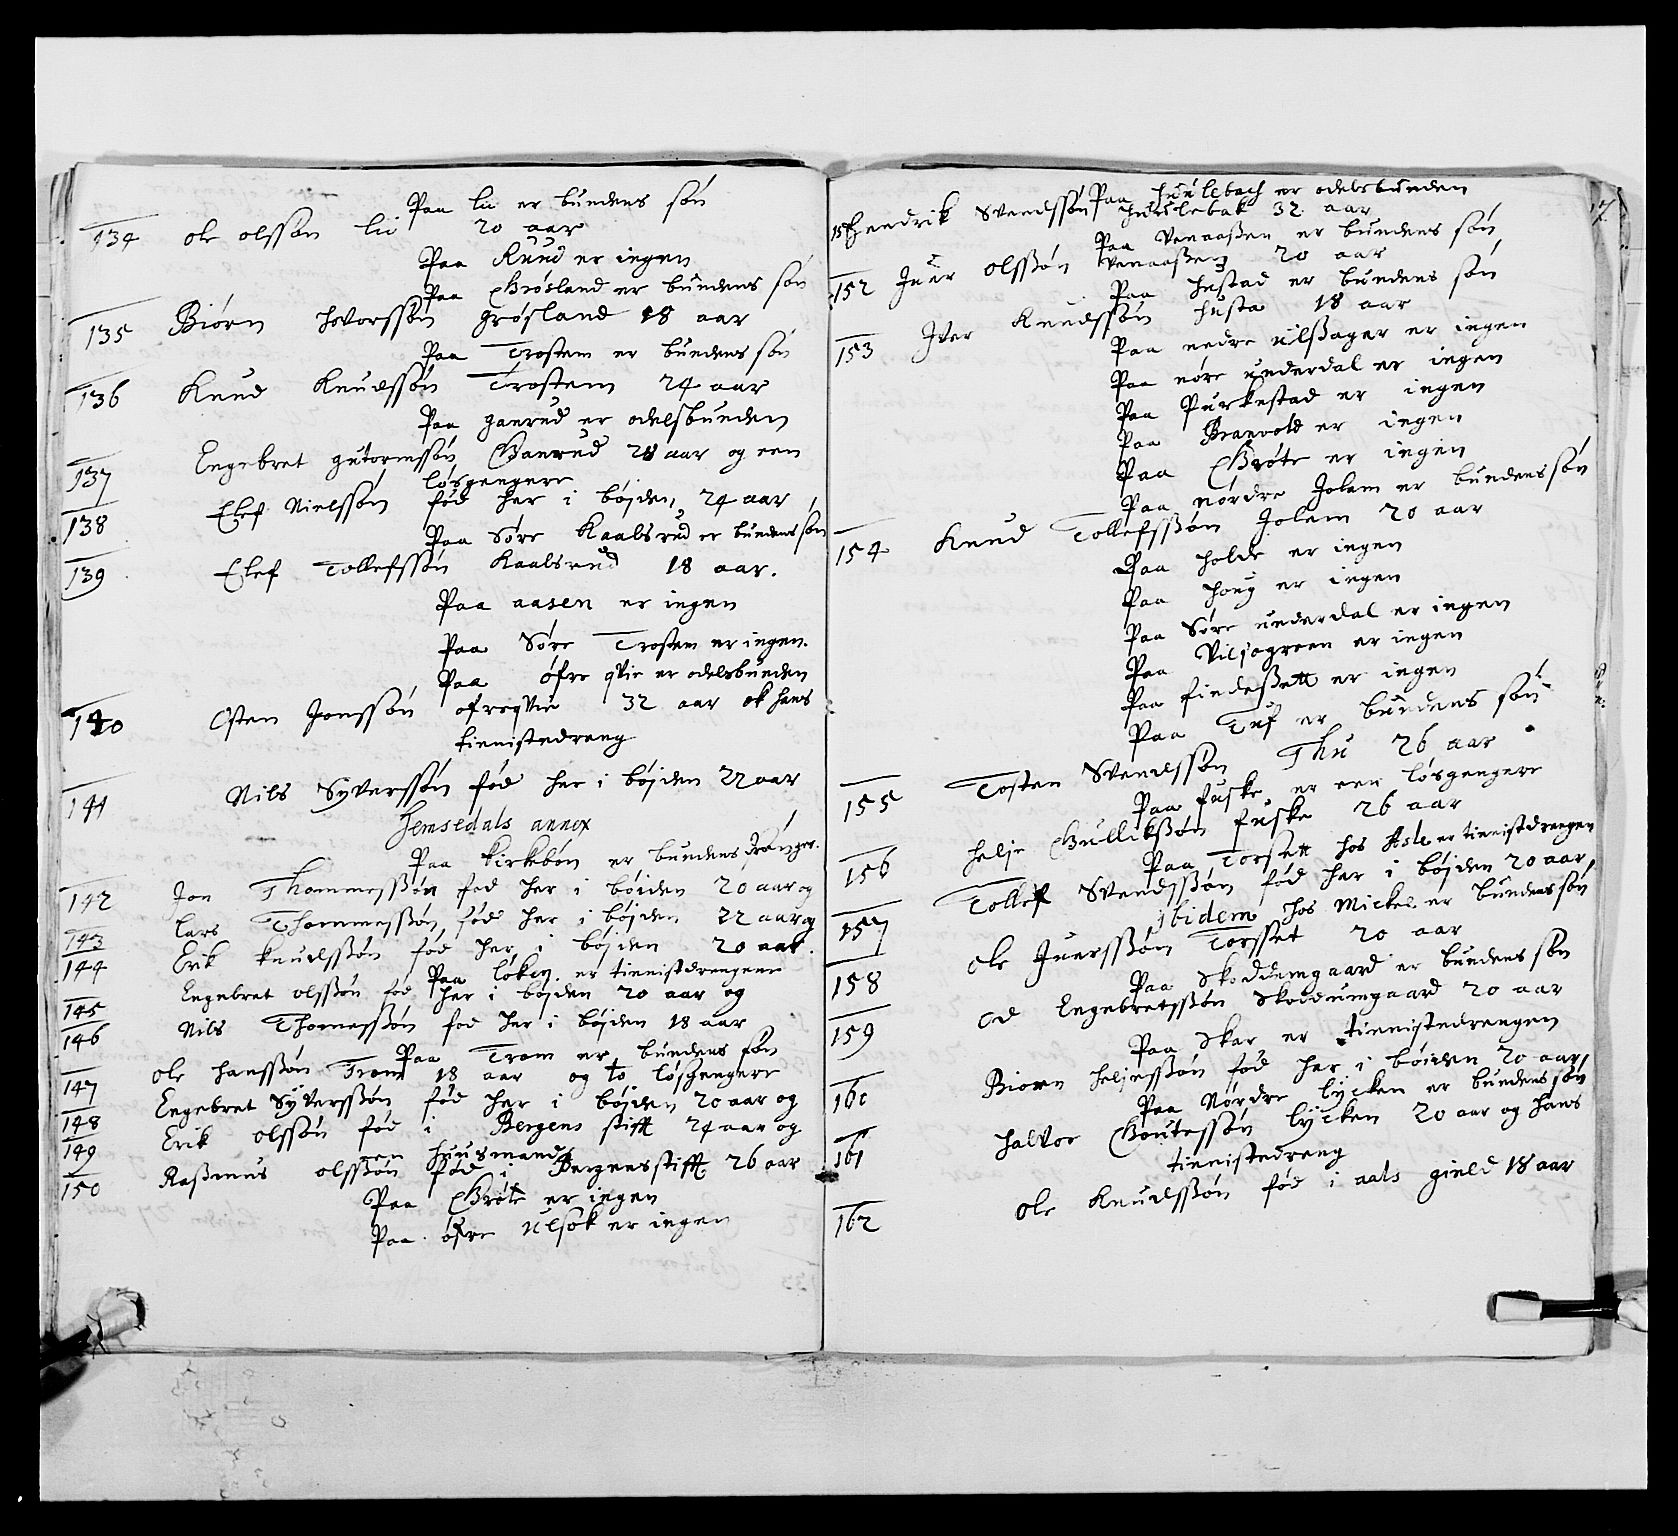 Paa lii er bundens søn
134 ole olssøn lii 20 aar
Paa Ruud er ingen
Paa Grøsland er bundens søn
135 Biørn hovorssøn grøsland 18 aar
Paa Trostem er bundens søn
136 Knud Knudssøn Trostem 24 aar
Paa ganrud er odelsbunden
137 Engebret gutormssøn Ganrud 28 aar og een
løsgengere
138 Elef Nielssøn fød her i bøjden, 24 aar
Paa Søre Kaalsrud er bundens søn
139 Elef Tollefssøn Kaalsrud 18 aar.
Paa aasen er ingen
Paa Søre Trostem er ingen.
Paa øfre qvie er odelsbunden
140 Osten Jonssøn ofreqvie 32 aar ok hans
tienistedreng
141 Nils Syverssøn fød her i bøjden 22 aar
Hemsedals annex
Paa kirkebøn er bundens drønger.
142 Jon Thommessøn fød her i bøiden 20 aar og
143 Lars Thommessøn, fød her i bøjden 22 aar og
144 Erik knudssøn fød her i bøjden 20 aar.
Paa løken er tienistdrengene
145 Engebret olssøn fød her i bøjden 20 aar og
146 Nils Thomessøn fød her i bøjden 18 aar
Paa Trøm er bundens søn
147 ole hanssøn Trøm 18 aar og to løsgengere
148 Engebret Syverssøn fød her i bøjden 20 aar og
149 Erik olssøn fød i Bergens stifft 24 aar og
een huusmand
150 Rasmus olssøn fød i Bergens stifft 26 aar
Paa Grøte er ingen
Paa øfre Ulsok er ingen
17
Paa huulebach er odelsbunden
151 Hendrik Svendssøn huulebak 32 aar
Paa Venaaßen er bundens søn
152 Iuer olssøn Venaaßen 20 aar
Paa hustad er bundens søn
153 Iver Knudssøn husta 18 aar
Paa nedre Ulsager er ingen
Paa nøre underdal er ingen
Paa Purkestad er ingen
Paa Branvold er ingen
Paa Grøte er ingen
Paa nørdre Jolem er bundens søn
154 Knud Tollefssøn Jolem 20 aar
Paa holde er ingen
Paa houg er ingen
Paa Søre underdal er ingen
Paa Viljogreen er ingen
Paa findeßett er ingen
Paa Tuf er bundens søn
155 Tosten Svendssøn Thu 26 aar
Paa fuske er een løsgengere
156 helje Gullikssøn fuske 26 aar
Paa Torsett hos Asle er tienistdrengen
157 Tollef Svendssøn fød her i bøjden 20 aar,
ibidem hos Mickel er bundens søn
158 ole Juerssøn Torsset 20 aar
Paa Skoddumgaard er bundens søn
159 Od Engebretssøn Skoddumgaard 20 aar
Paa Skar er tienistedrengen
160 Biørn heljessøn fød her i bøiden 20 aar,
Paa Nørdre lycken er bundens søn
161 halvor Goutessøn lycken 20 aar og hans
tienistedreng
162 ole Knudssøn fød i aals gield 18 aar